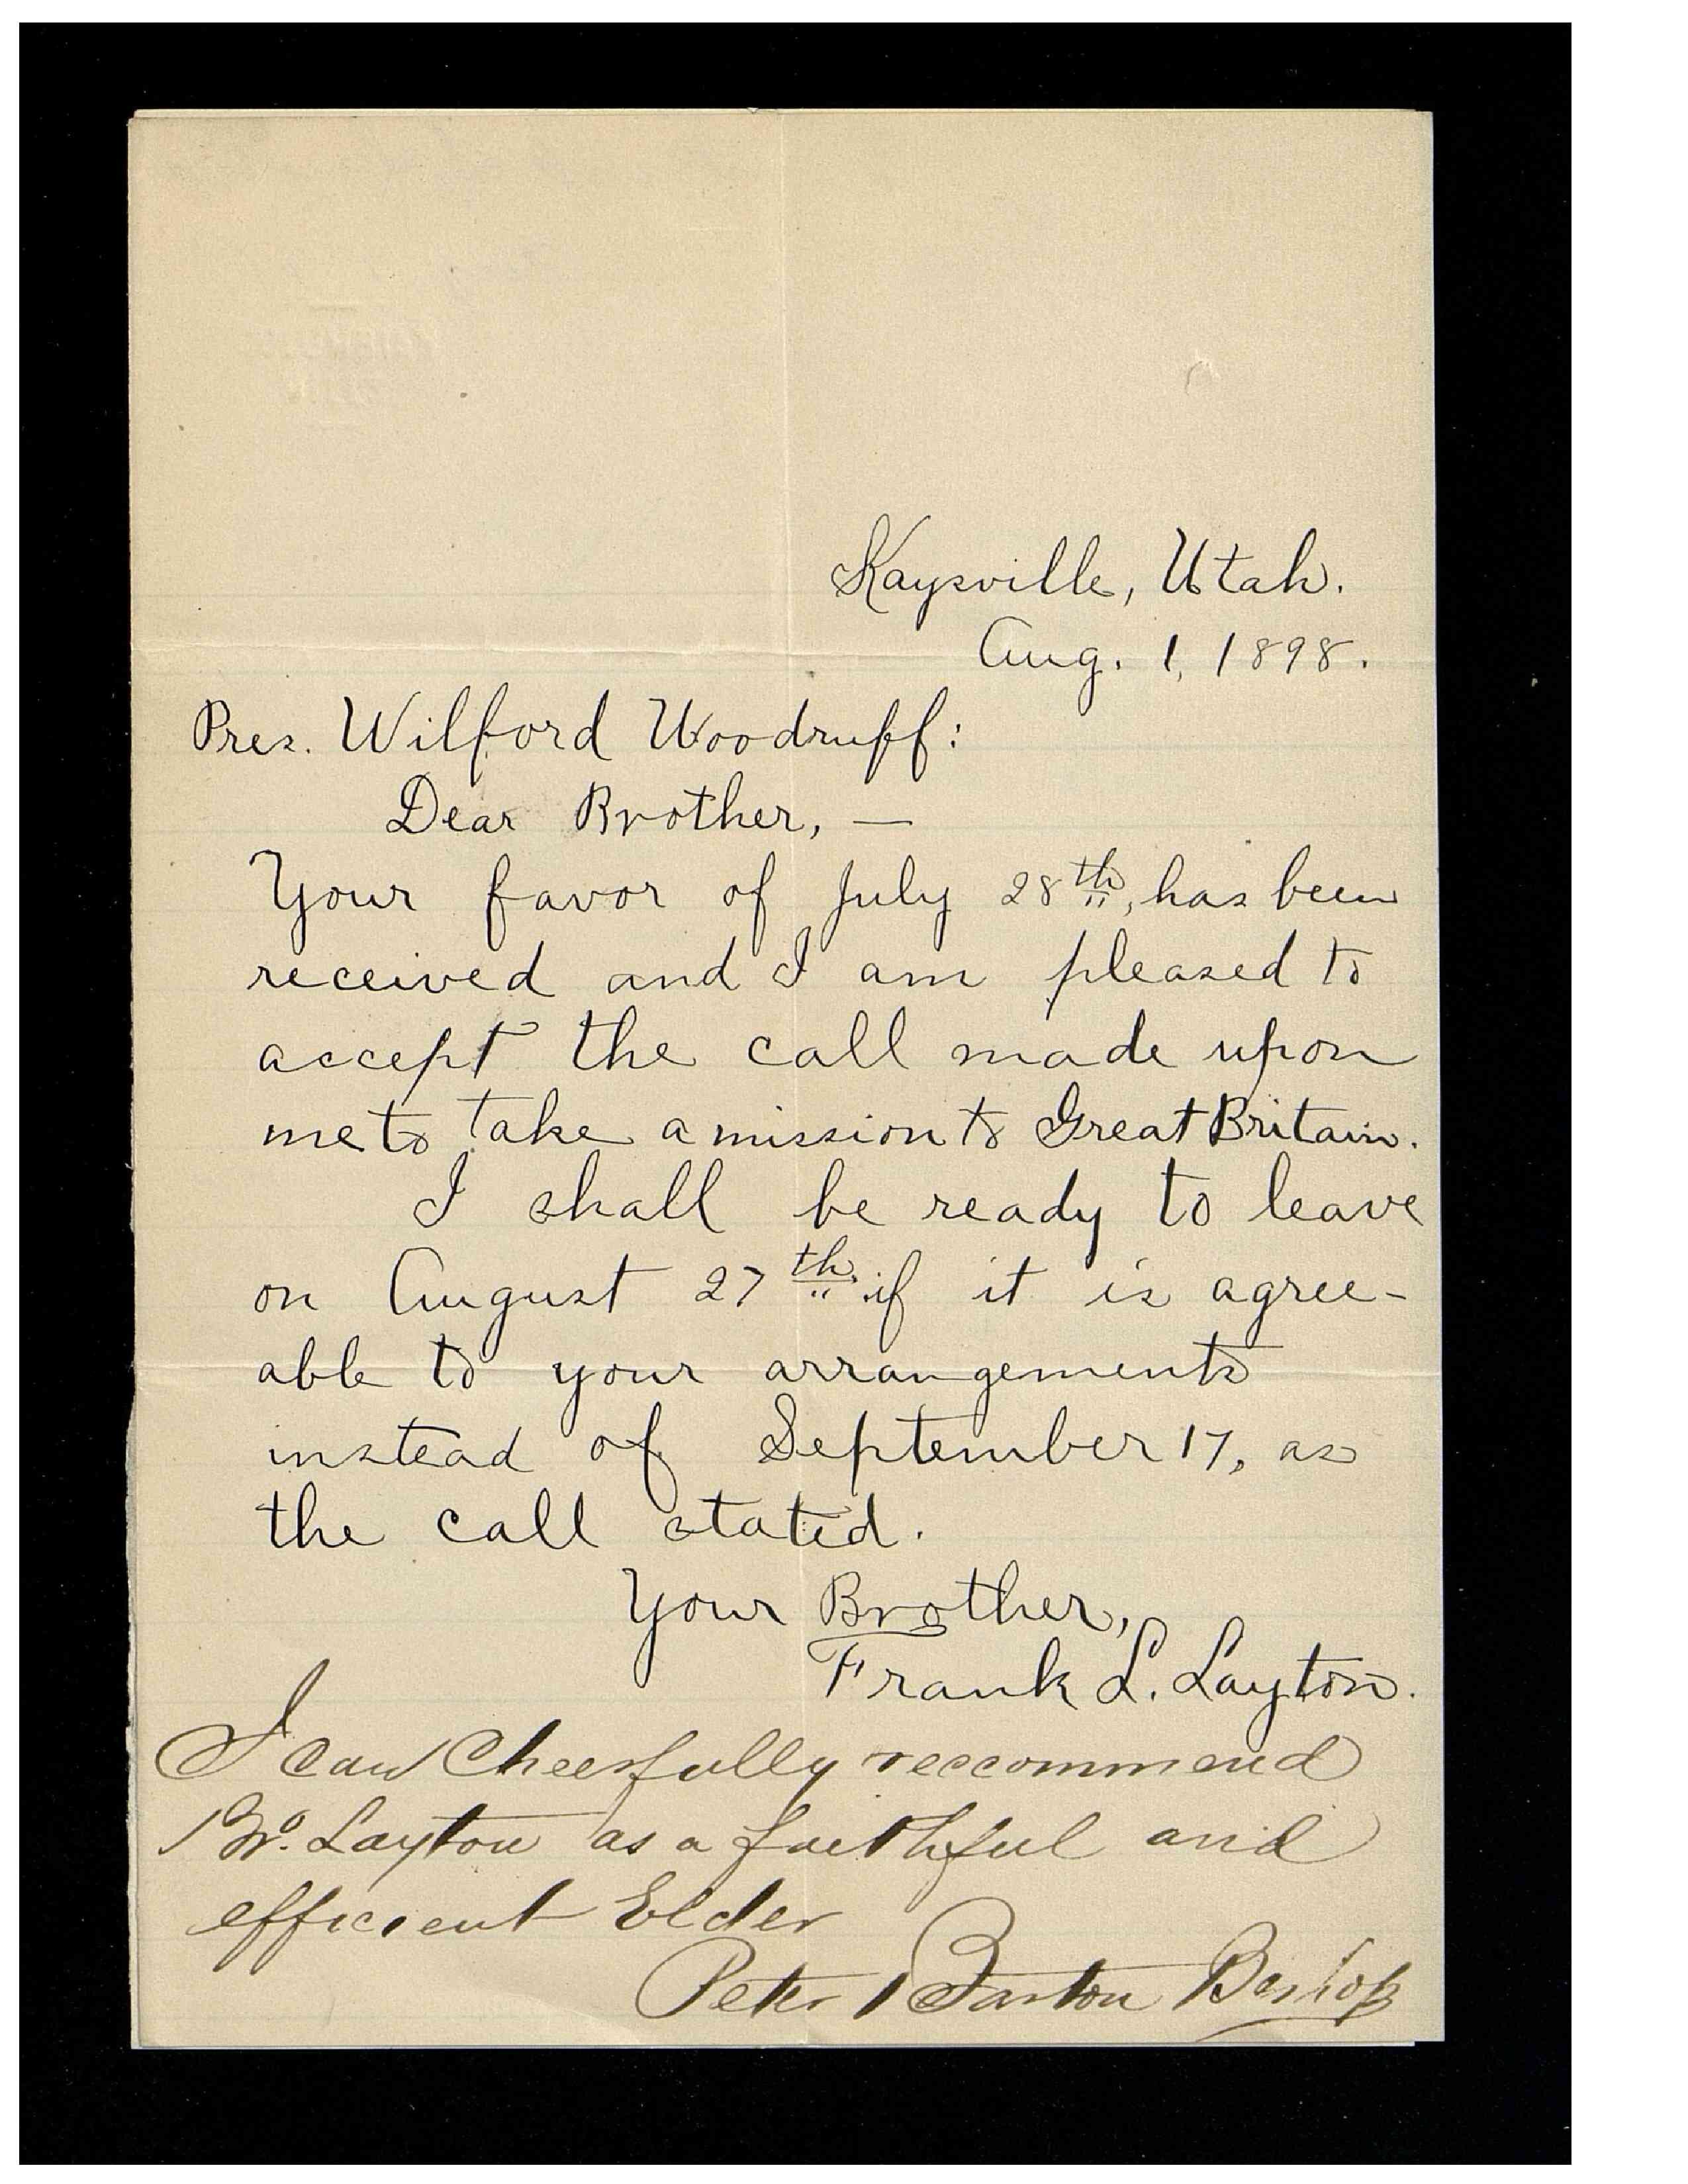 Kaysville, Utah.
Aug. 1, 1898.
Pres. Wilford Woodruff:
Dear Brother, —
Your favor of July 28th, has been
received and I am pleased to
accept the call made upon
me to take a mission to Great Britain.
I shall be ready to leave
on August 27th. if it is agree-
able to your arrangements
instead of September 17, as
the call stated.
Your Brother,
Frank L. Layton.
I can Cheerfully reccommend
Bro. Layton as a faithful and
efficient Elder
Peter Barton Bishop